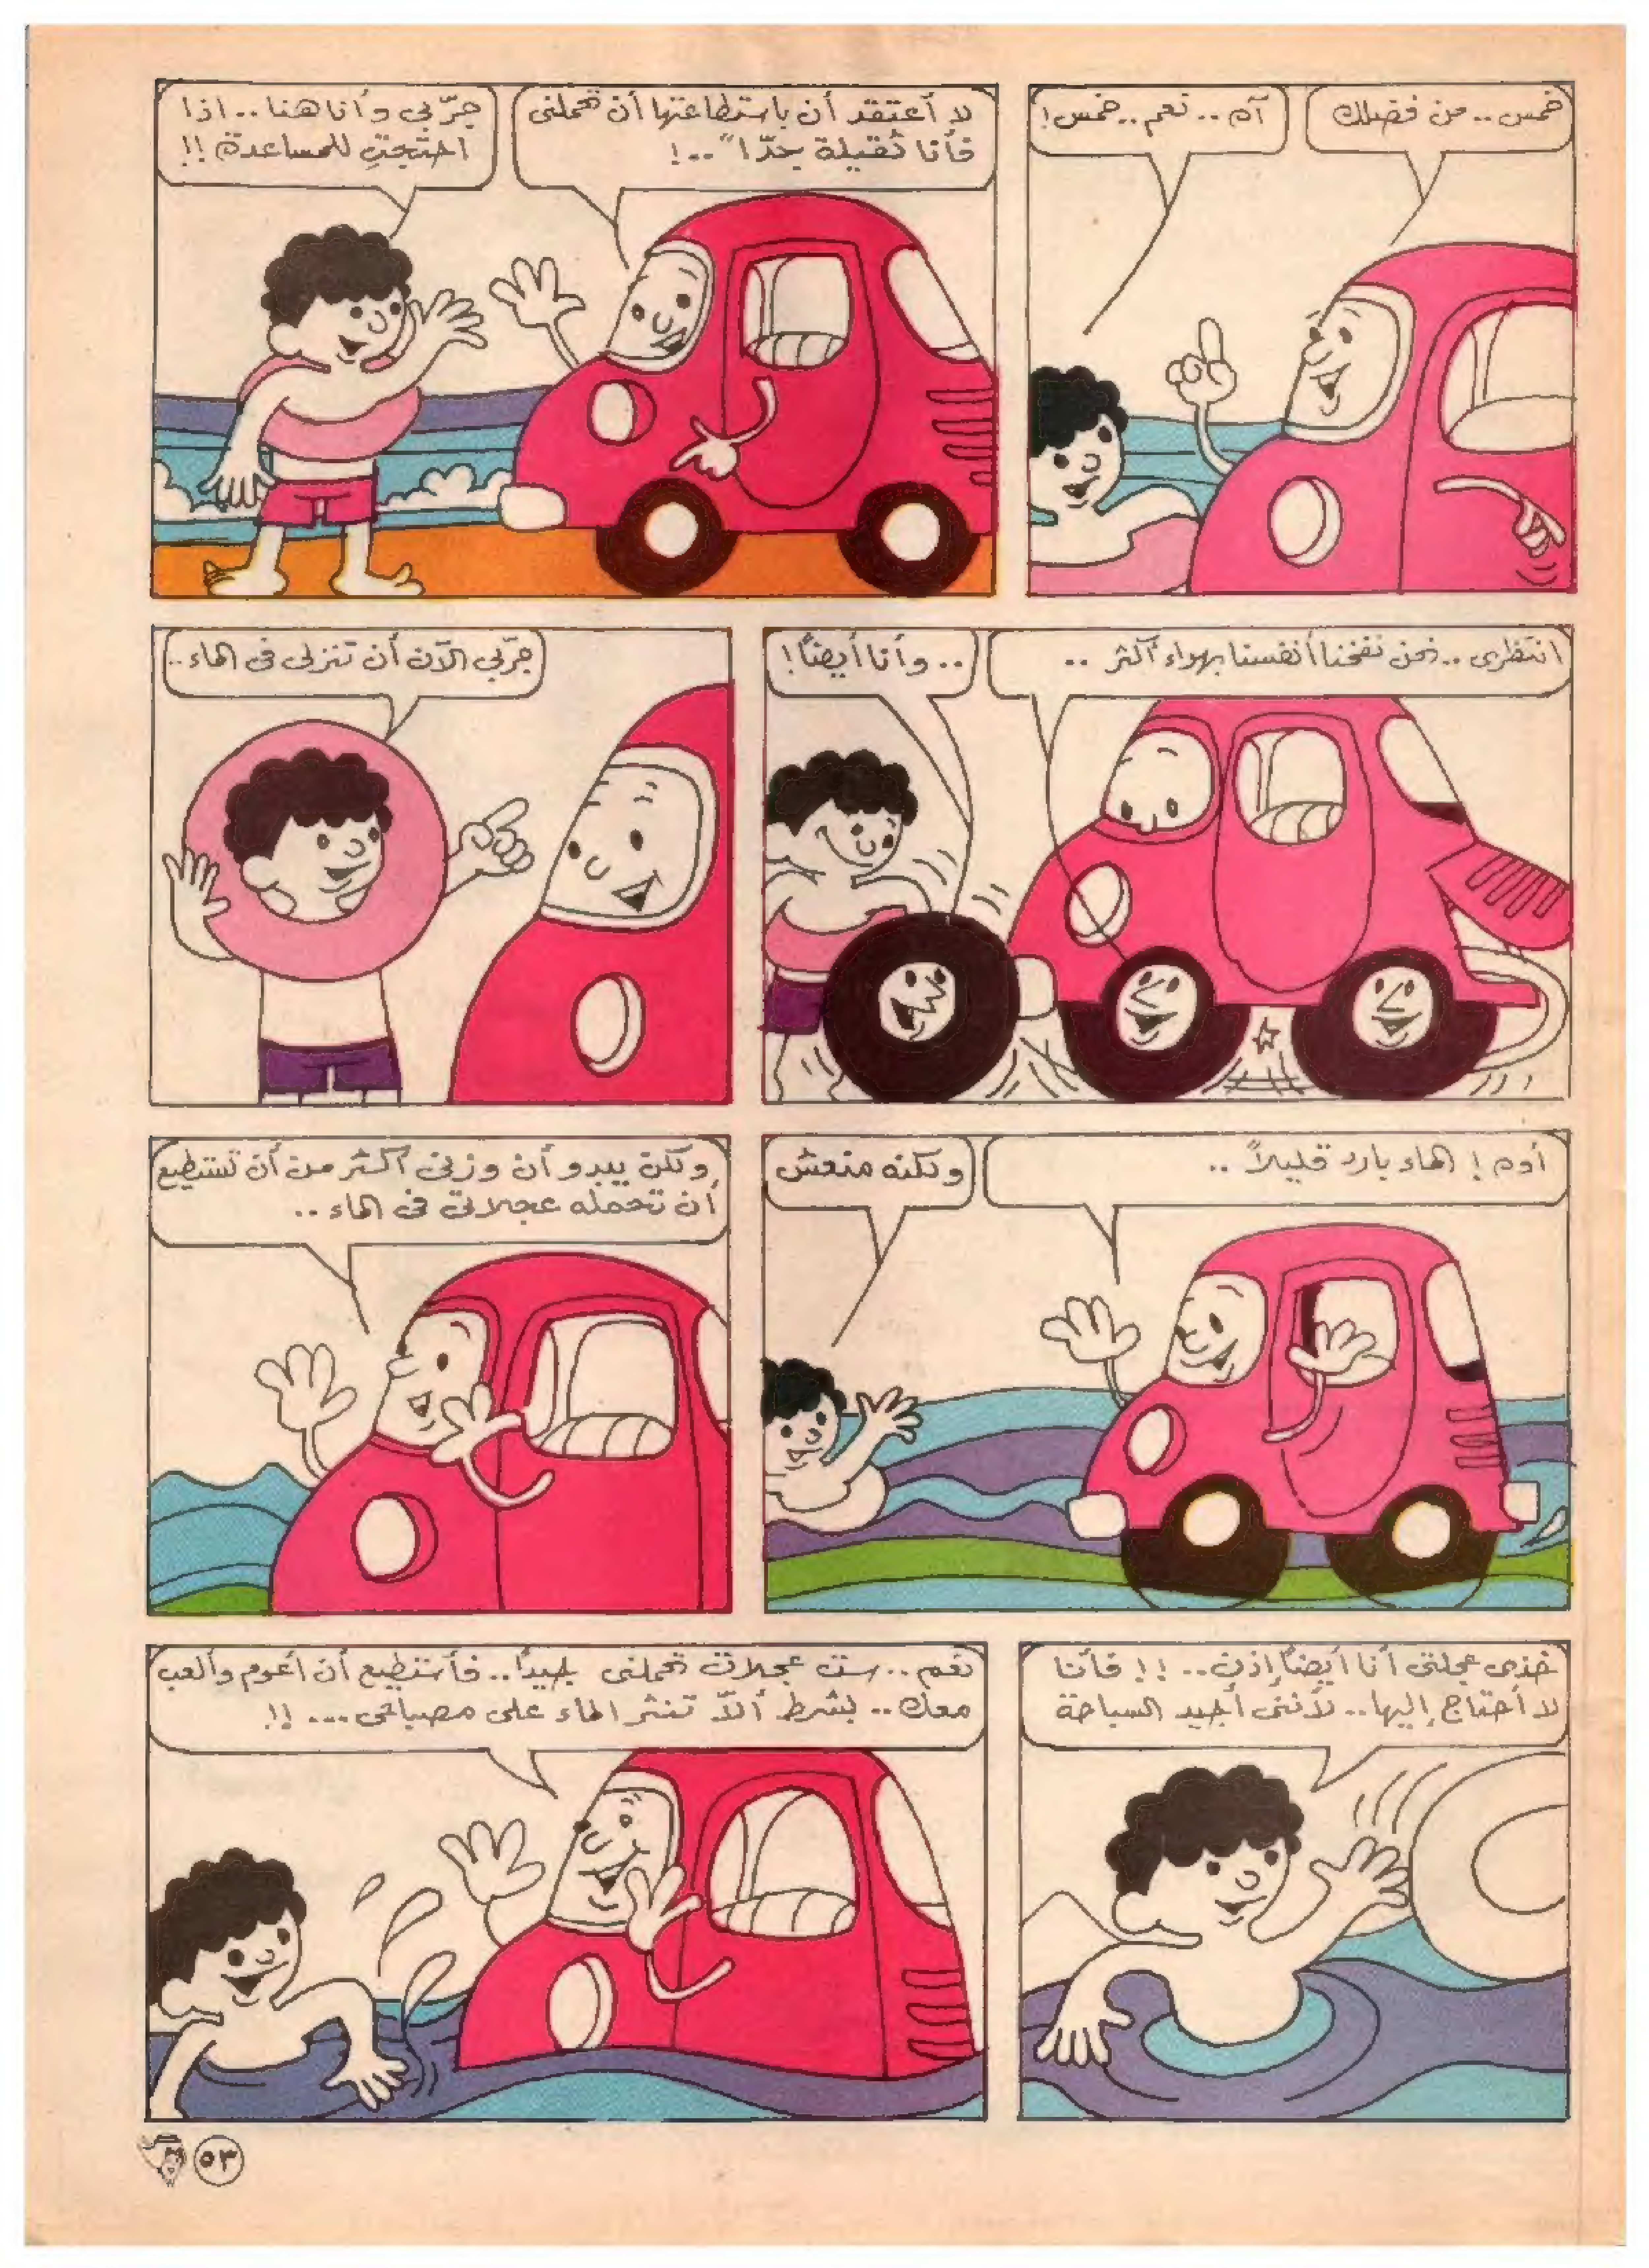 خمس .. من فضلك
آه .. نعم .. خمس !
لا أعتقد أن باستطاعتها أن تحملنى
فأنا ثقيلة جدّا" .. !
جرّبي وأنا هنا .. اذا
احتجتِ للمساعدة !!
انتظرى .. نحن نفخنا أنفسنا بهواء أكثر ..
.. وأنا أيضاً !
جرّبي الآن أن تنزلى فى الماء ..
أوه ! الماء بارد قليلاً ..
ولكنه منعش
ولكن يبدو أن وزنى أكثر من أن تستطيع
أن تحمله عجلاتى فى الماء ..
خذى عجلتى أنا أيضاً إذن .. !! فأنا
لا أحتاج إليها .. لأننى أجيد السباحة
نعم .. ست عجلات تحملنى جيداً .. فأستطيع أن أعوم وألعب
معك .. بشرط ألاّ تنثر الماء على مصباحى ... !!
٥٣